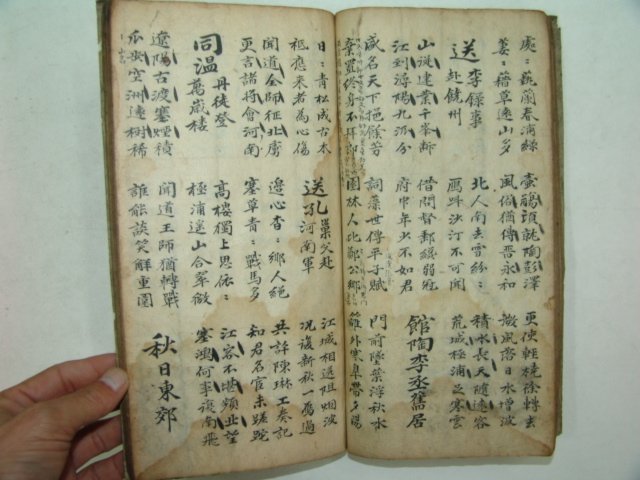 處〻蓺蘭春浦綠
萋〻藉草遠山多
壺觴須就陶彭澤
風俗猶傳晉永和
更使輕橈徐轉去
微風落日水增波
送李錄事
赴饒州
北人南去雪紛〻
雁叫沙汀不可聞
積水長天隨遠客
荒城極浦足寒雲
山從建業千峯斷
江到潯陽九派分
借問督郵纔弱冠
府中年少不如君
館陶李丞舊居
盛名天下挹餘芳
棄置終身不拜郎
詞藻世傳平子賦
園林人比鄭公鄉
門前墜葉浮秋水
籬外寒皐帶夕陽
日〻青松成古木
祗應來者為心傷
送孔巢父赴
河南軍
江城相送阻烟波
況復新秋一鴈過
聞道全師征北虜
更言諸將會河南
邊心杳〻鄉人絕
塞草青〻戰馬多
共許陳琳工奏記
知君名宦未蹉跎
同溫丹徒登
萬歲樓
高樓獨上思依〻
極浦遙山合翠微
江客不堪頻北望
塞鴻何事復南飛
遼陽古渡寒煙積
瓜步空洲遠樹稀
聞道王師猶轉戰
誰能談笑解重圍
秋日東郊